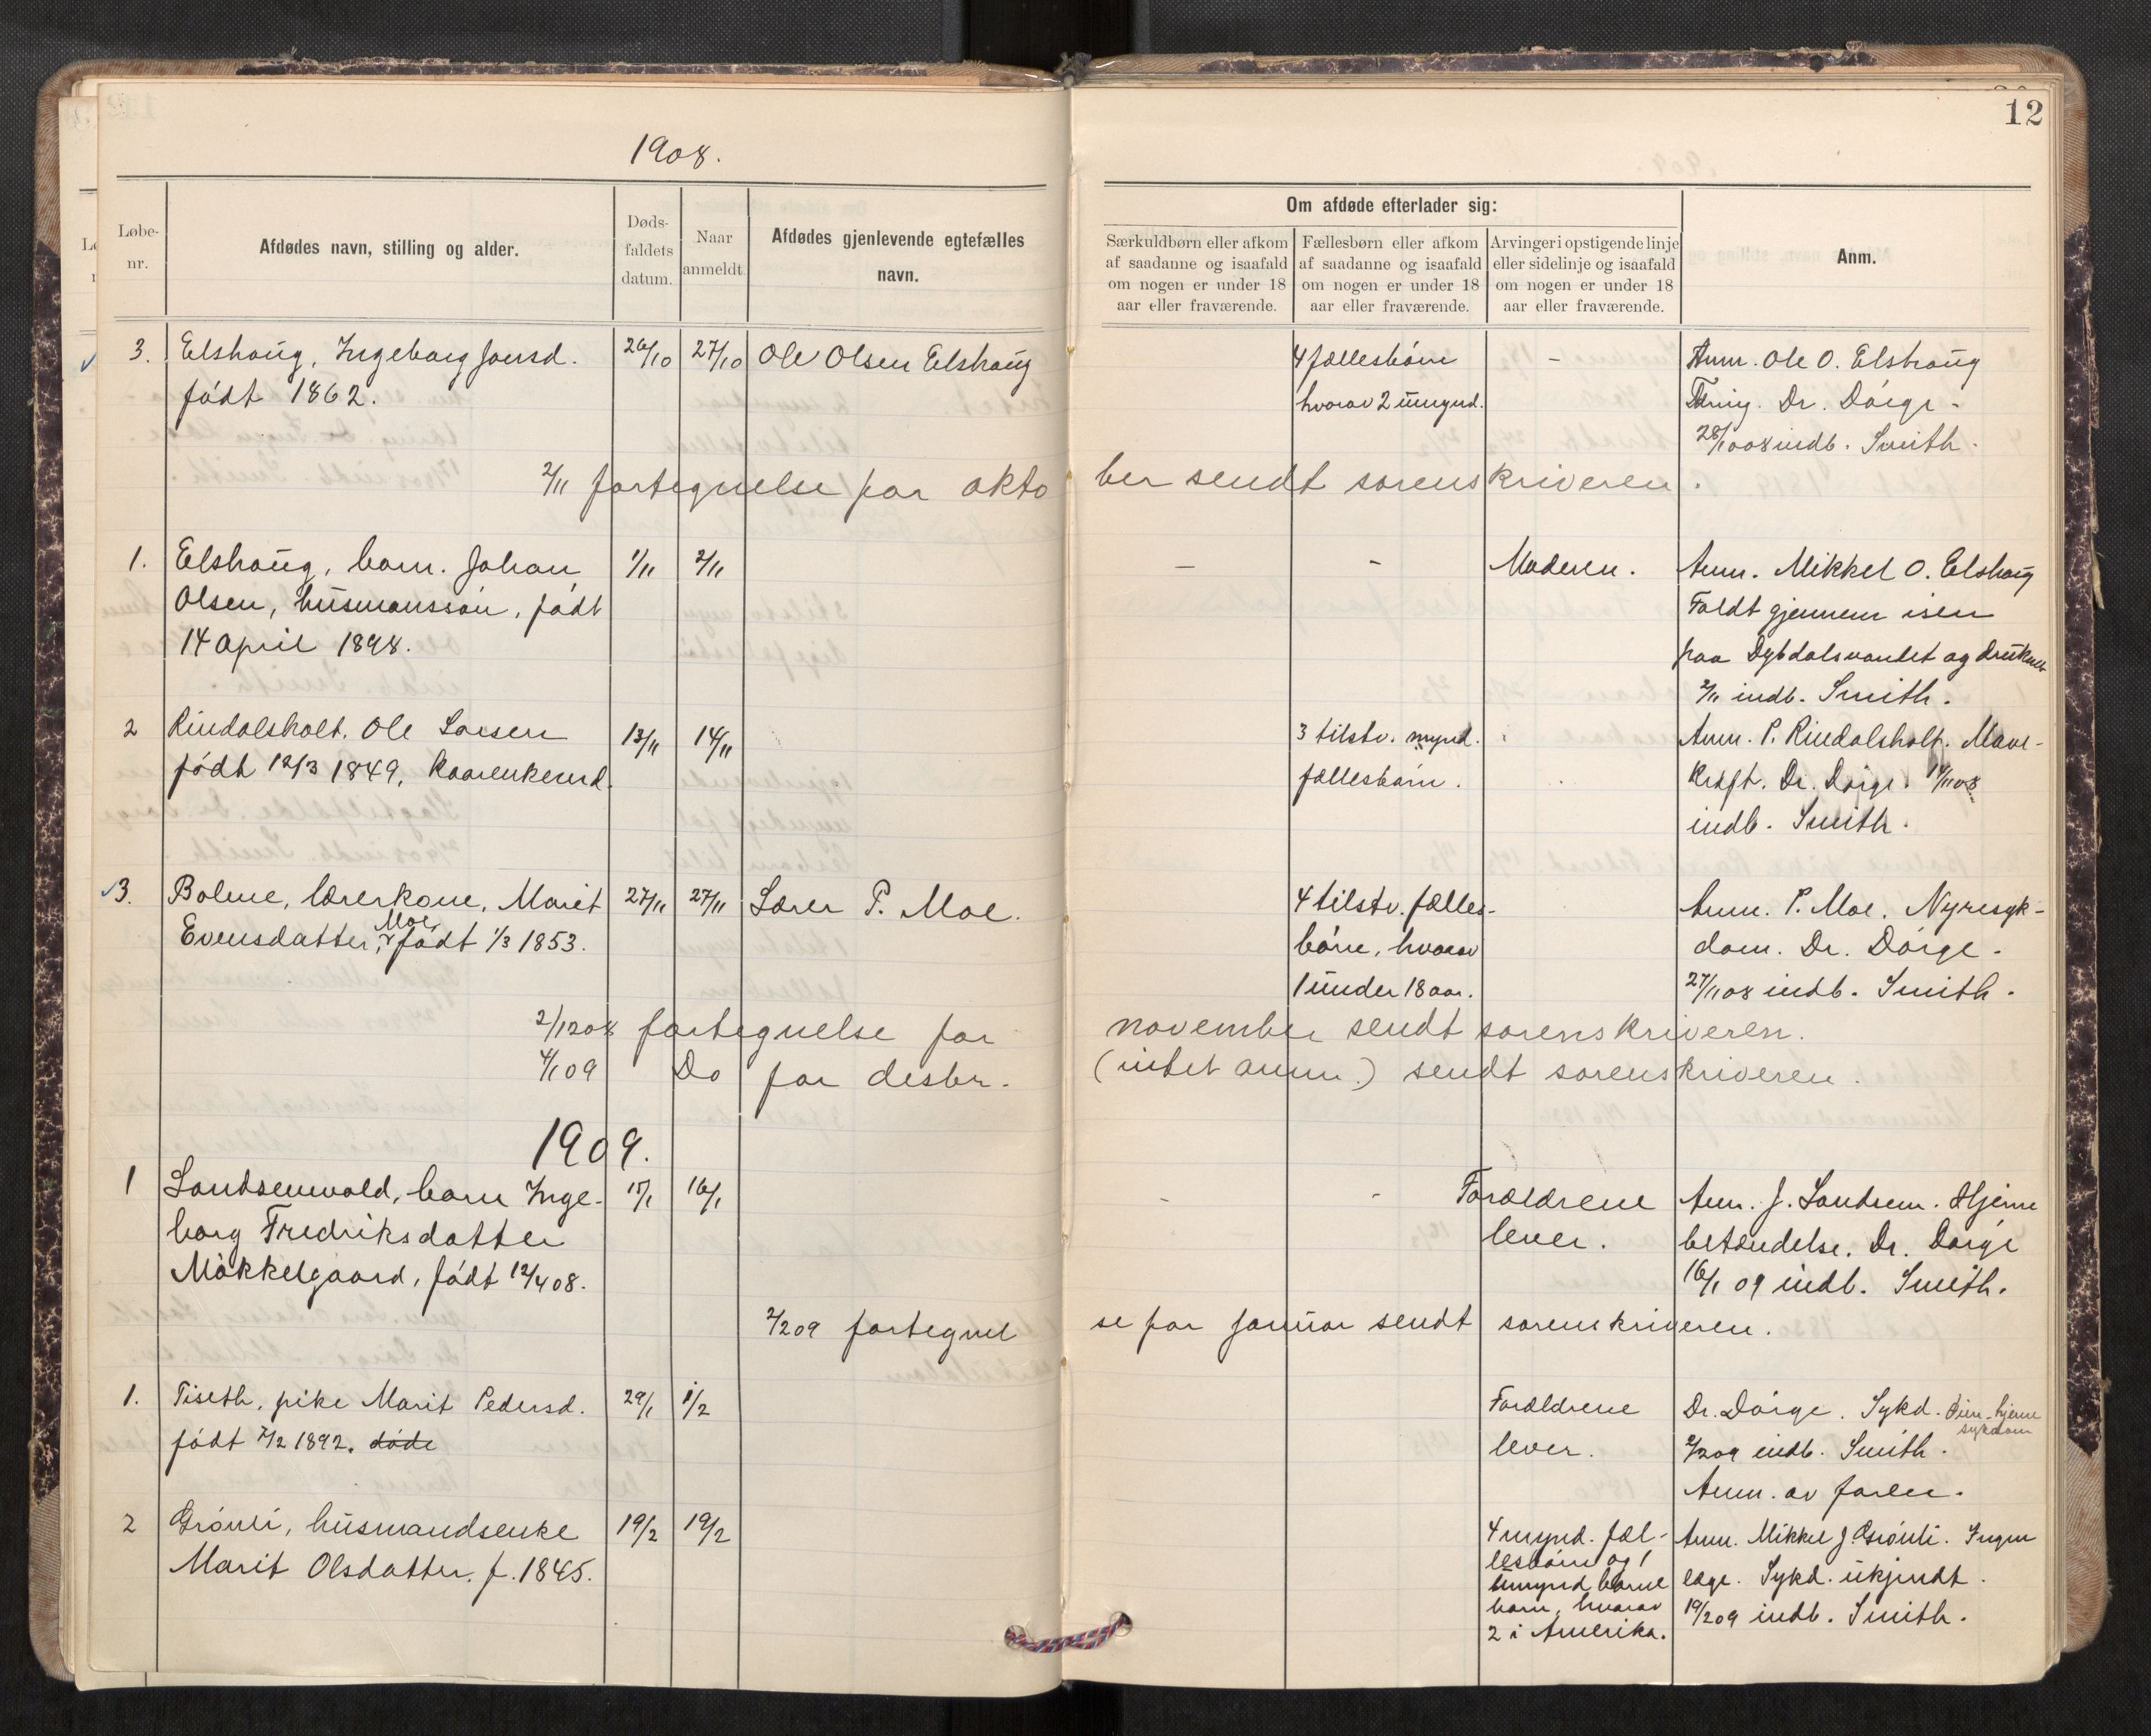 12
1908.
Løbe-
nr.
Afdødes navn, stilling og alder.
Døds-
faldets
datum.
Naar
anmeldt.
Afdødes gjenlevende egtefælles
navn.
Om afdøde efterlader sig:
Særkuldbørn eller afkom
af saadanne og isaafald
om nogen er under 18
aar eller fraværende.
Fællesbørn eller afkom
af saadanne og isaafald
om nogen er under 18
aar eller fraværende.
Arvinger i opstigende linje
eller sidelinje og isaafald
om nogen er under 18
aar eller fraværende.
Anm.
3. Elshaug, Ingeborg Joensd. 26/10 27/10 Ole Olsen Elshaug 4 fællesbørn - Anm. Ole O. Elshaug
født 1862. hvorav 2 umynd. Tæring. Dr. Dørge.
28/1008 indb. Smith.
2/11 fortegnelse for oktober sendt sorenskriveren.
1. Elshaug, barn. Johan 1/11 2/11 - - Moderen. Anm. Mikkel O. Elshaug
Olsen, husmanssøn, født Faldt gjennem isen
14 april 1898. paa Dybdalsvandet og druknet
2/11 indb. Smith.
2 Rindalsholt. Ole Larsen 13/11 14/11 3 tilstv. mynd. Anm. P. Rindalsholt. Mave-
født 12/3 1849, kaarenkemd. fællesbørn. kræft. Dr. Dørge. 14/1108
indb. Smith.
3. Bolme, lærerkone, Marit 27/11 27/11 Lærer P. Moe. 4 tilstv. fælles- Anm. P. Moe. Nyresyk-
Evensdatter, Moe, født 1/3 1853. børn, hvorav dom. Dr. Dørge.
1 under 18 aar. 27/1108 indb. Smith.
2/1208 fortegnelse for november sendt sorenskriveren.
4/109 Do for desbr. (intet anm.) sendt sorenskriveren.
1909.
1 Landsemvald, barn Inge- 15/1 16/1 - - Forældrene Anm. J. Landsem. Hjerne
borg Fredriksdatter lever. betændelse. Dr. Dørge
Møkkelgaard, født 12/4 08. 16/1 09 indb. Smith.
2/209 fortegnelse for januar sendt sorenskriveren.
1. Tiseth, pike Marit Pedersd. 29/1 1/2 Forældrene Dr. Dørge. Sykd. hjerne
sykdom
født 7/2 1892. døde lever. 2/209 indb. Smith.
Anm. av faren.
2 Grønli, husmandsenke 19/2 19/2 4 mynd. fæl- Anm. Mikkel J. Grønli. Ingen
Marit Olsdatter. f. 1845. lesbørn og 1 læge. Sykd. ukjendt.
umynd. barne
barn, hvorav 19/209 indb. Smith.
2 i Amerika.